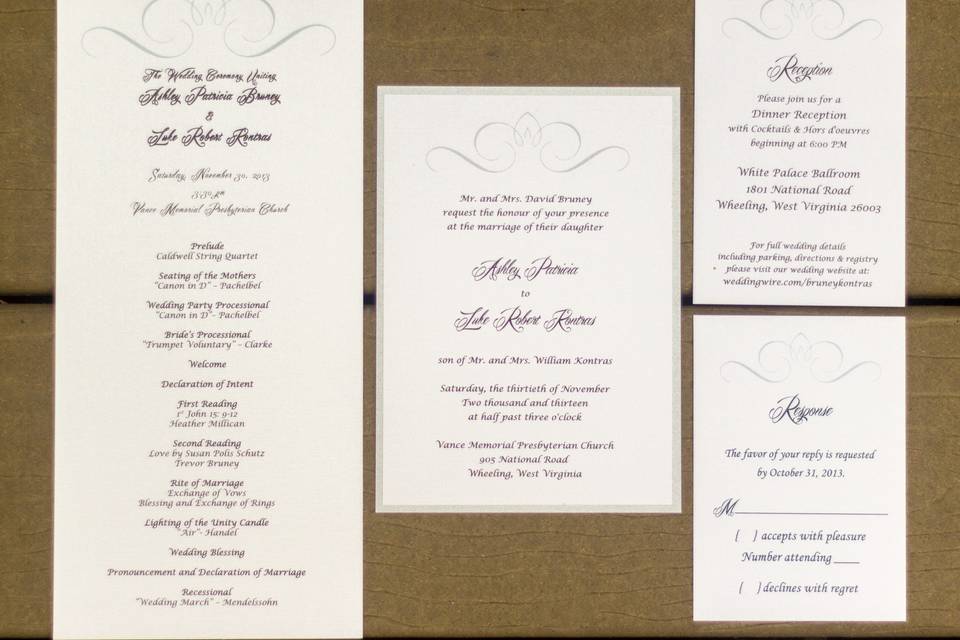 The Wedding Ceremony Uniting
Ashley Patricia Bruney
&
Luke Robert Kontras
Saturday, November 30, 2013
3:30 PM
Vance Memorial Presbyterian Church
Prelude
Caldwell String Quartet
Seating of the Mothers
"Canon in D" - Pachelbel
Wedding Party Processional
"Canon in D"- Pachelbel
Bride's Processional
"Trumpet Voluntary" - Clarke
Welcome
Declaration of Intent
First Reading
1st John 15: 9-12
Heather Millican
Second Reading
Love by Susan Polis Schutz
Trevor Bruney
Rite of Marriage
Exchange of Vows
Blessing and Exchange of Rings
Lighting of the Unity Candle
"Air"- Handel
Wedding Blessing
Pronouncement and Declaration of Marriage
Recessional
"Wedding March" - Mendelssohn
Mr. and Mrs. David Bruney
request the honour of your presence
at the marriage of their daughter
Ashley Patricia
to
Luke Robert Kontras
son of Mr. and Mrs. William Kontras
Saturday, the thirtieth of November
Two thousand and thirteen
at half past three o'clock
Vance Memorial Presbyterian Church
905 National Road
Wheeling, West Virginia
Reception
Please join us for a
Dinner Reception
with Cocktails & Hors d'oeuvres
beginning at 6:00 PM
White Palace Ballroom
1801 National Road
Wheeling, West Virginia 26003
For full wedding details
including parking, directions & registry
please visit our wedding website at:
weddingwire.com/bruneykontras
Response
The favor of your reply is requested
by October 31, 2013.
M
[ ] accepts with pleasure
Number attending
[ ] declines with regret